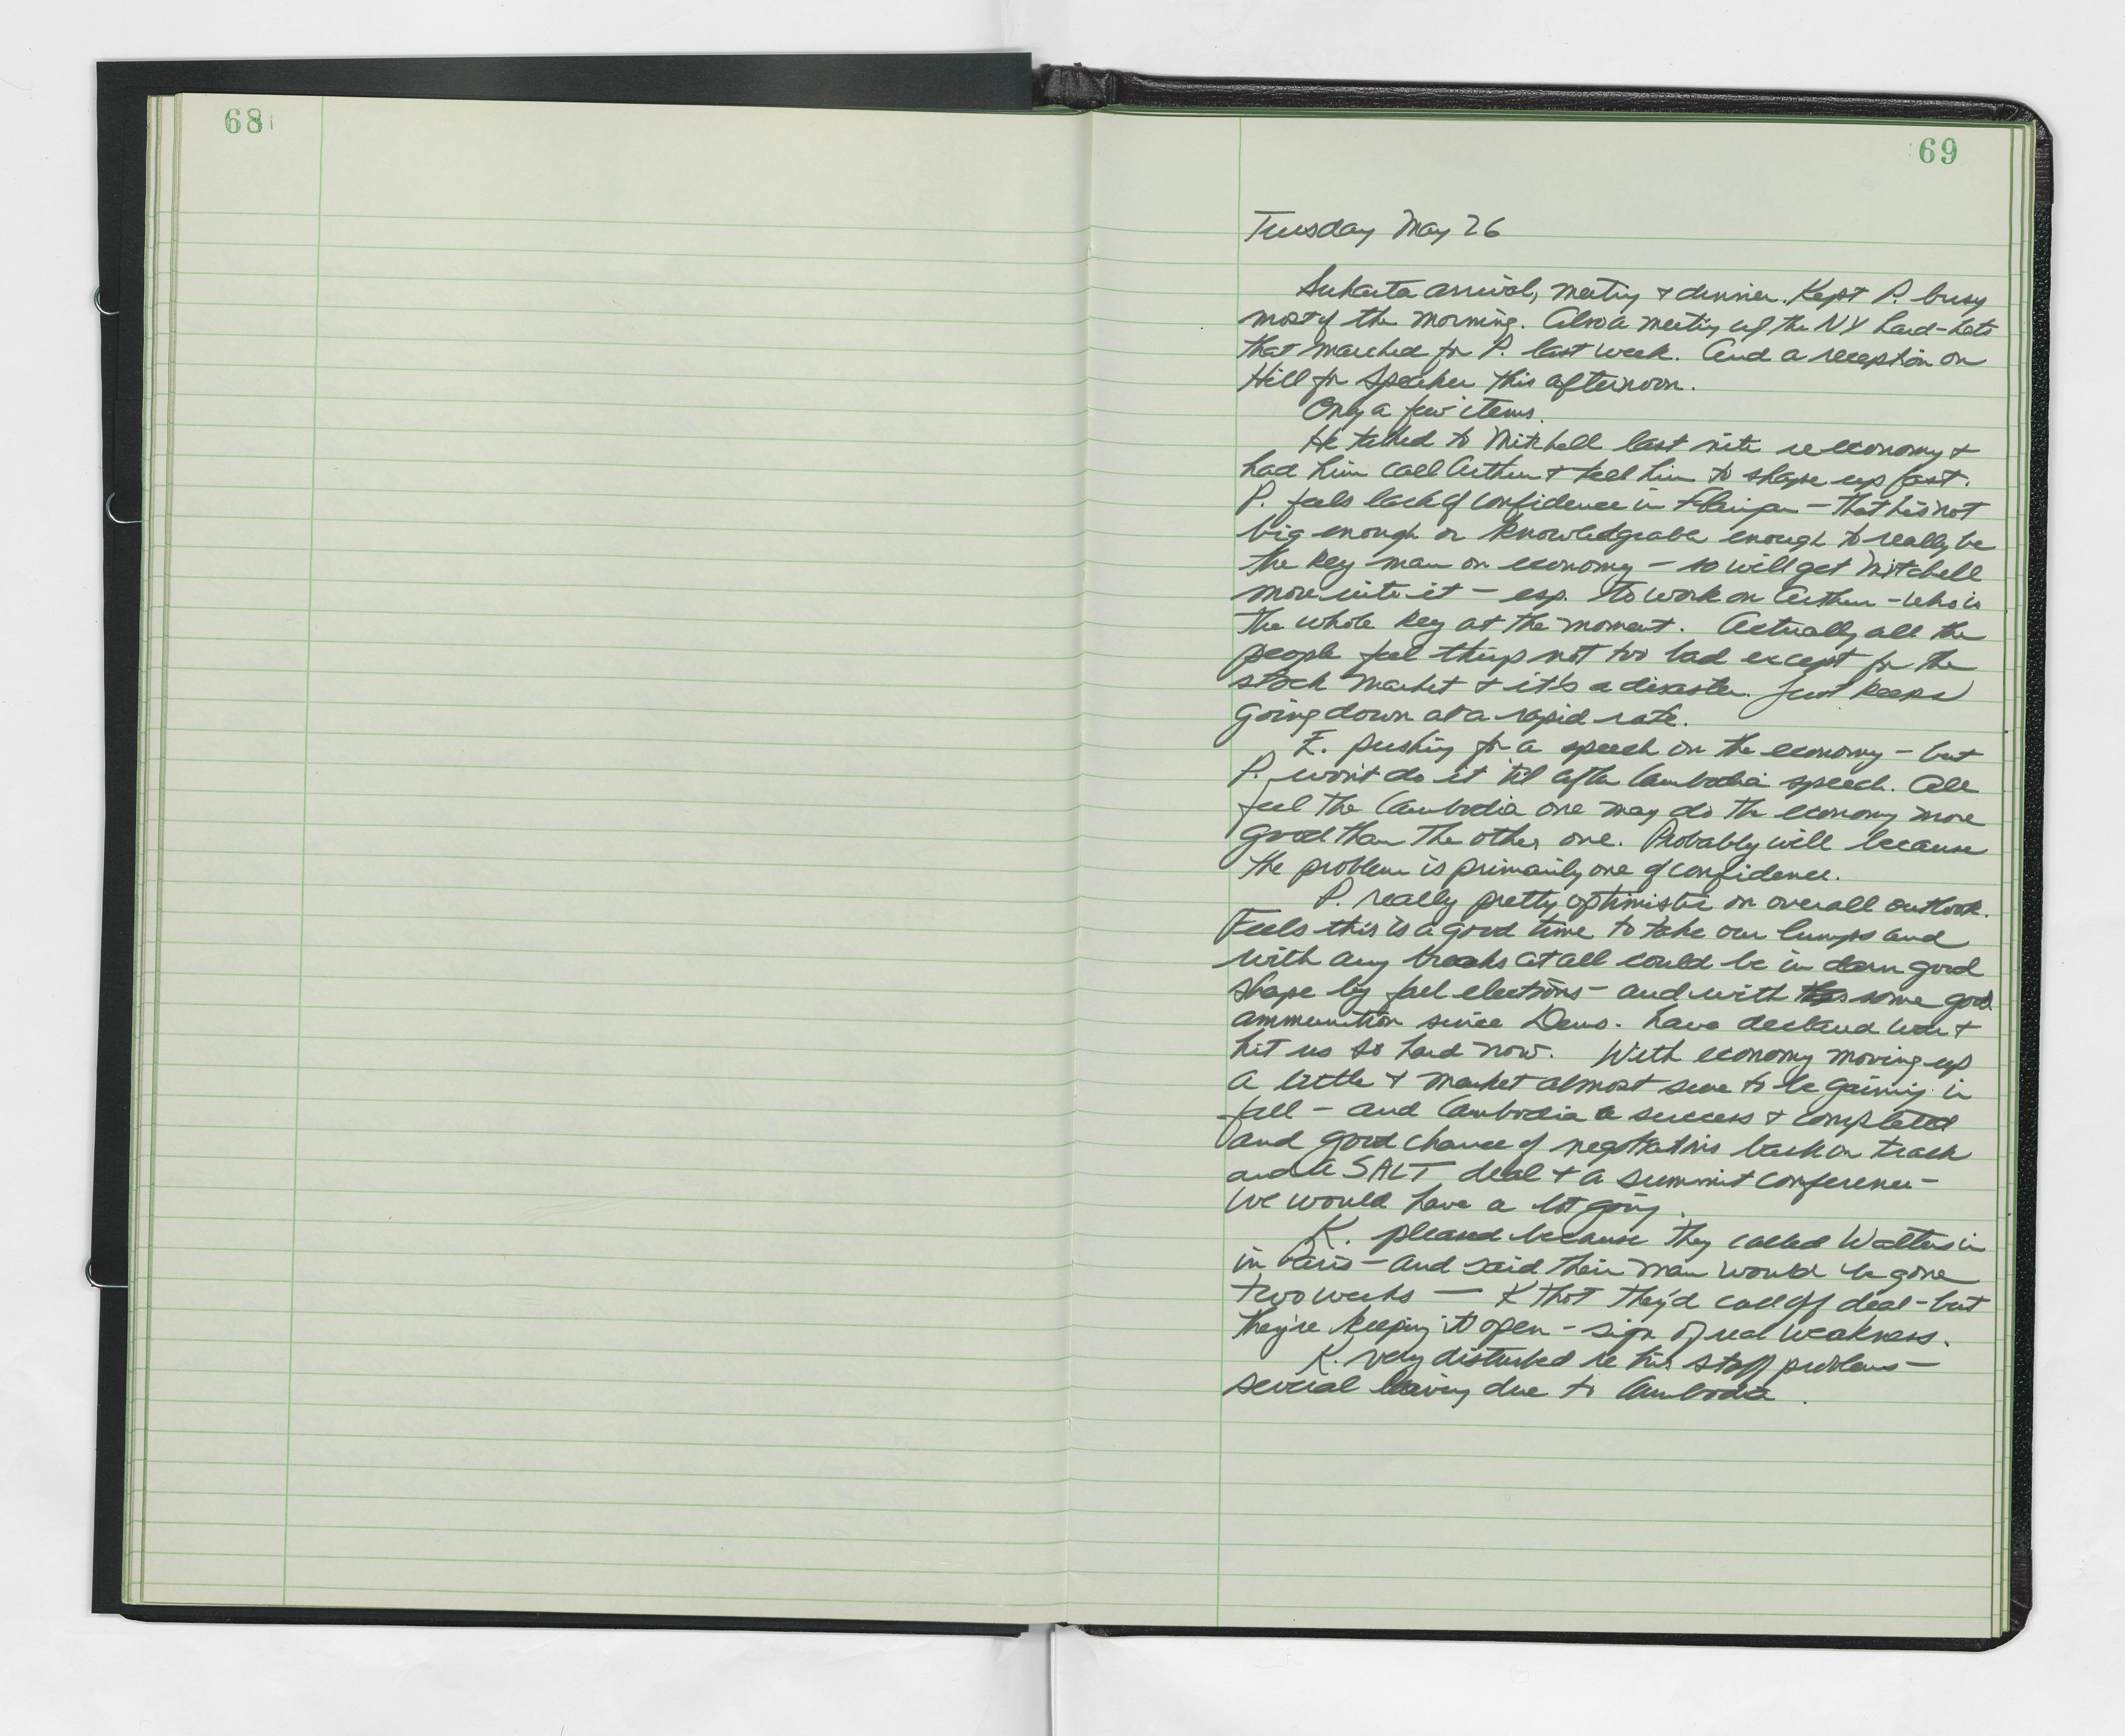 68
69
Tuesday May 26
Suharto arrival, meeting & dinner. Kept P. busy
most of the morning. Also a meeting w/ the NY hard-hats
that marched for P. last week. And a reception on
Hill for Speaker this afternoon.
Only a few items.
He talked to Mitchell last nite re economy &
had him call Arthur & tell him to shape up fast.
P. feels lack of confidence in Flanigan - that he's not
big enough or knowledgeable enough to really be
the key man on economy - so will get Mitchell
more into it - esp. to work on Arthur - who is
the whole key at the moment. Actually all the
people feel things not too bad except for the
stock market & it's a disaster. Just keeps
going down at a rapid rate.
E. pushing for a speech on the economy - but
P. won't do it 'til after Cambodia speech. All
feel the Cambodia one may do the economy more
good than the other one. Probably will because
the problem is primarily one of confidence.
P. really pretty optimistic on overall outlook.
Feels this is a good time to take our lumps and
with any breaks at all could be in darn good
shape by fall elections - and with some good
ammunition since Dems. have declared war &
hit us so hard now. With economy moving up
a little & market almost sure to be gaining in
fall - and Cambodia a success & completed
and good chance of negotiations back on track
and a SALT deal & a summit conference -
we would have a lot going.
K. pleased because they called Walters in
in Paris - and said their man would be gone
two weeks — K thot they'd call off deal - but
they're keeping it open - sign of real weakness.
K. very disturbed re his staff problems -
several leaving due to Cambodia.